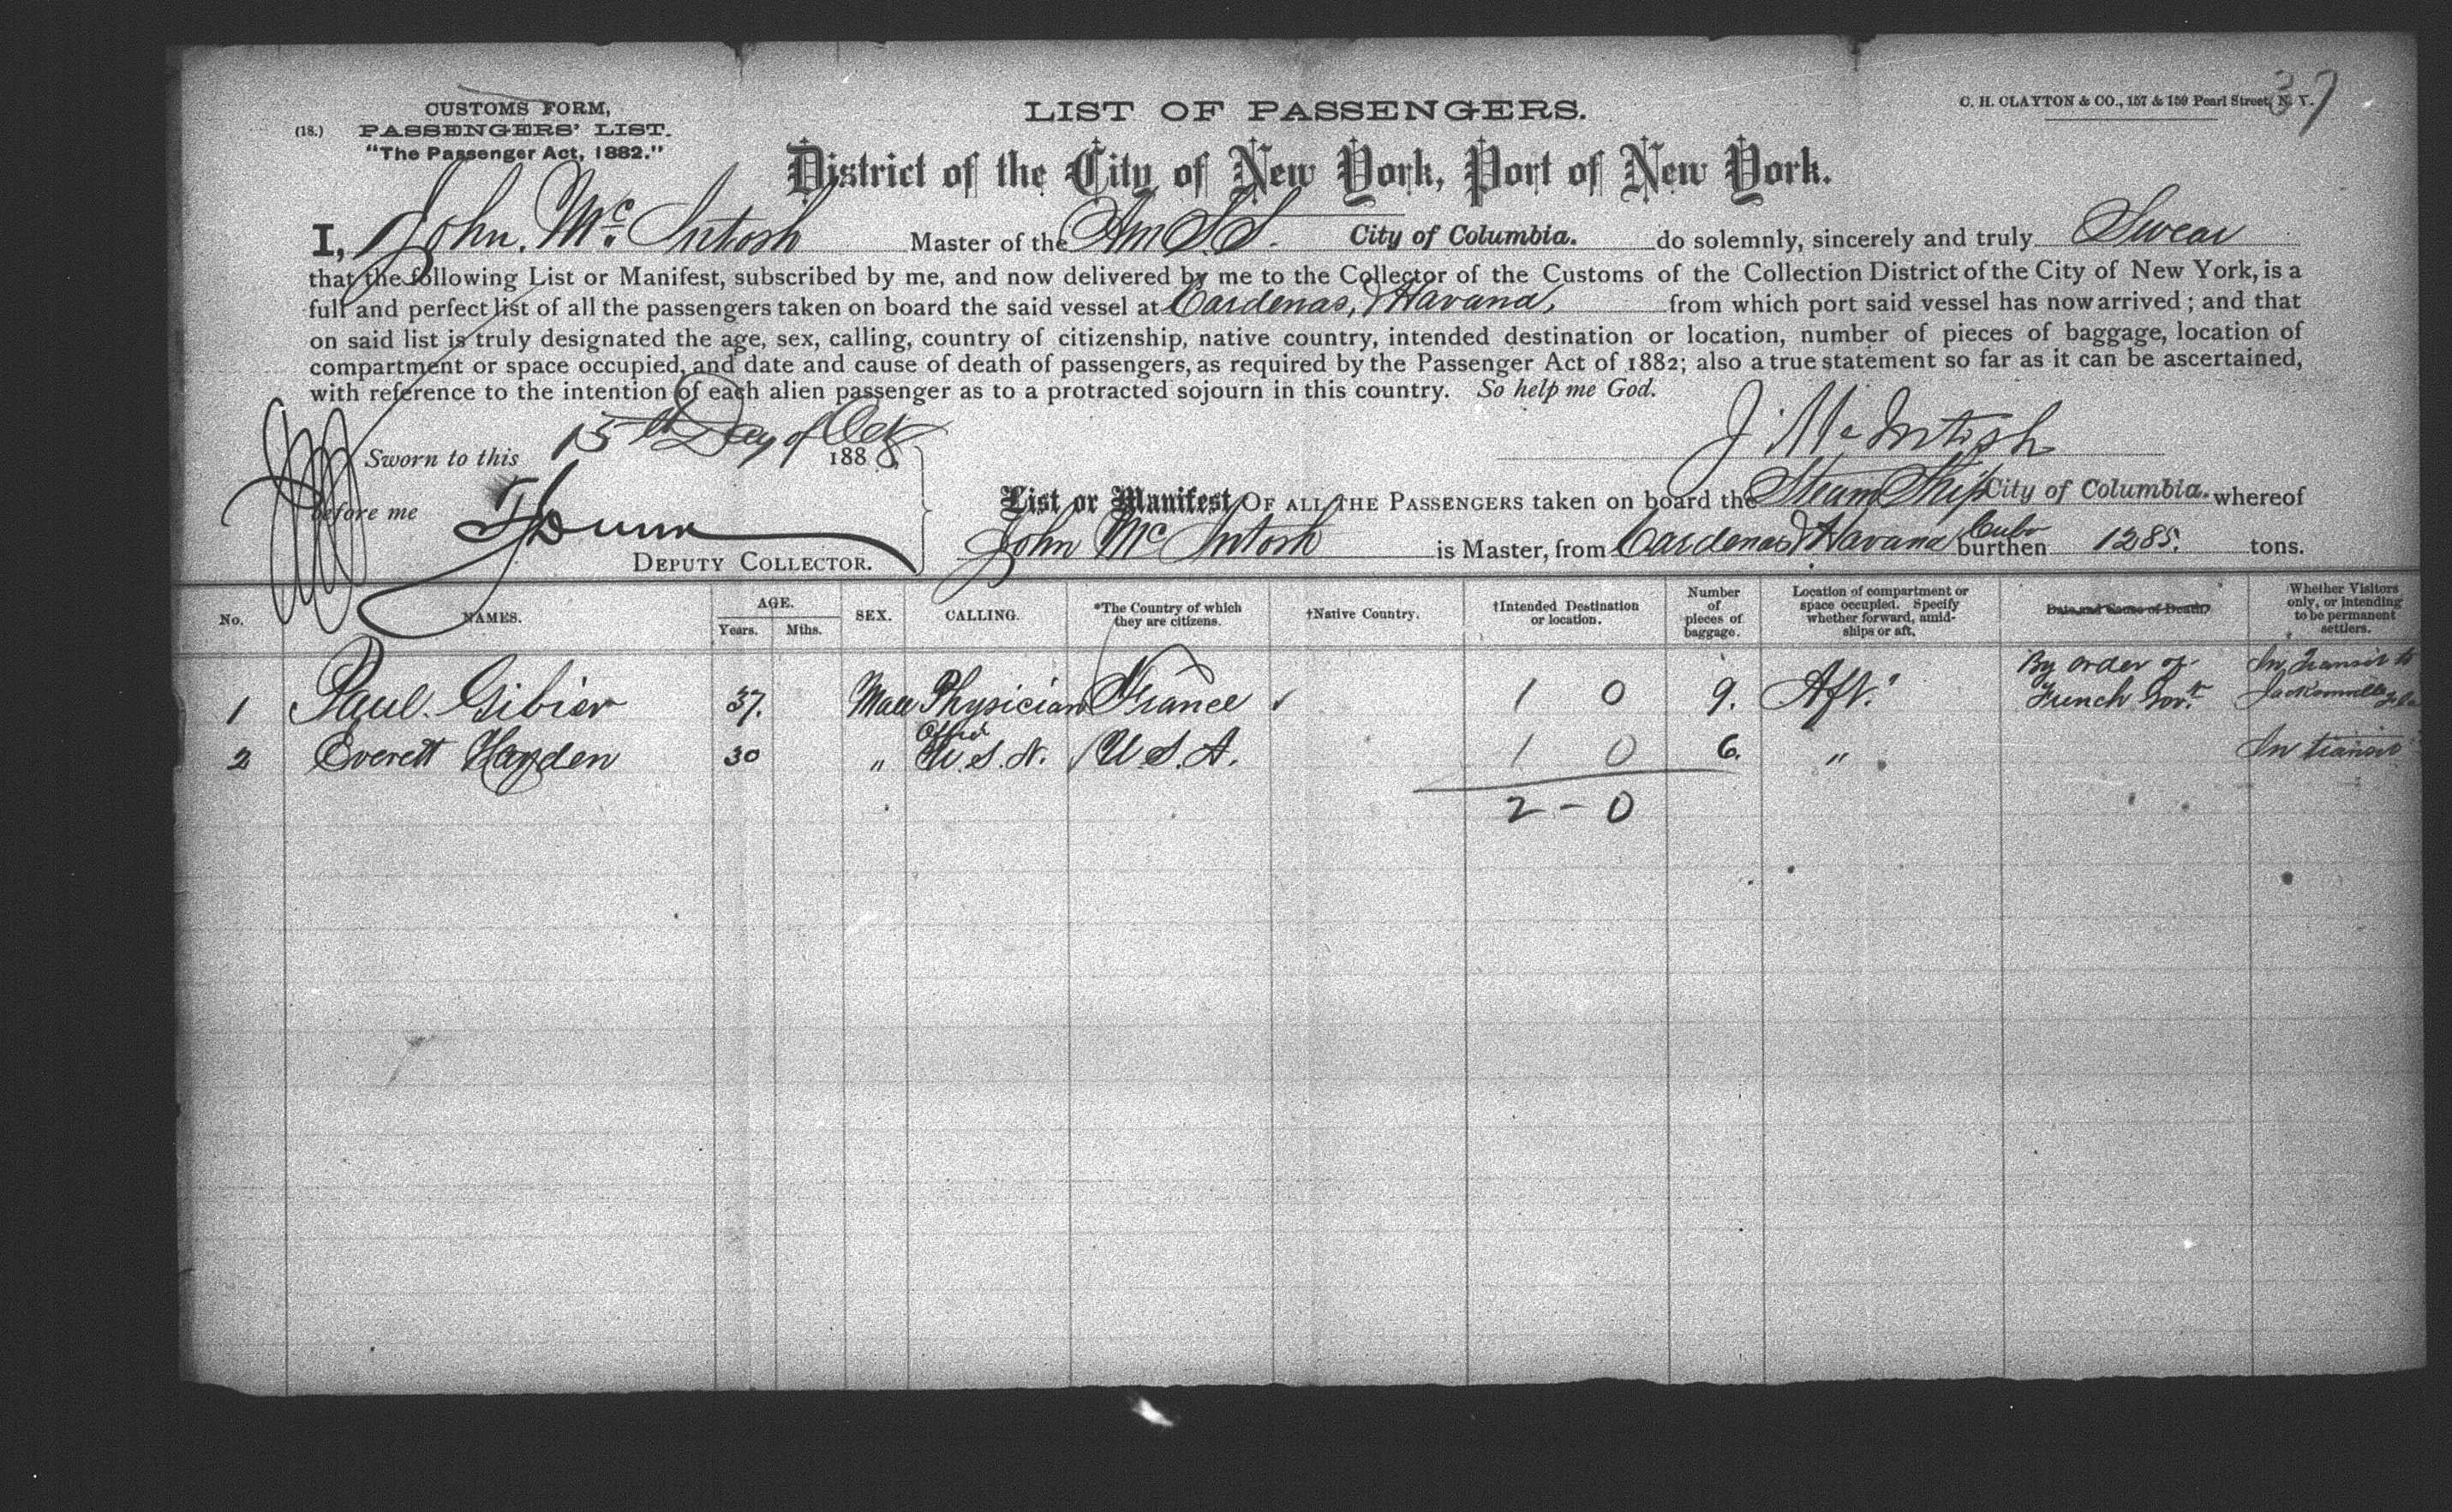 CUSTOMS FORM,
(18.) PASSENGERS' LIST.
"The Passenger Act, 1882."
LIST OF PASSENGERS.
C. H. CLAYTON & CO., 157 & 159 Pearl Street, N. Y.
37
District of the City of New York, Port of New York.
I, John. Mc. Intosh Master of the Am S.S. City of Columbia. do solemnly, sincerely and truly Swear
that the following List or Manifest, subscribed by me, and now delivered by me to the Collector of the Customs of the Collection District of the City of New York, is a
full and perfect list of all the passengers taken on board the said vessel at Cardenas, & Havana, from which port said vessel has now arrived; and that
on said list is truly designated the age, sex, calling, country of citizenship, native country, intended destination or location, number of pieces of baggage, location of
compartment or space occupied, and date and cause of death of passengers, as required by the Passenger Act of 1882; also a true statement so far as it can be ascertained,
with reference to the intention of each alien passenger as to a protracted sojourn in this country. So help me God.
J. McIntosh
Sworn to this 15th Day of Oct 1888
before me
DEPUTY COLLECTOR.
List or Manifest OF ALL THE PASSENGERS taken on board the Steam Ship City of Columbia. whereof
John Mc Intosh is Master, from Cardenas & Havana Cuba burthen 1285. tons.
No. NAMES. AGE. Years. Mths. SEX. CALLING. *The Country of which they are citizens. †Native Country. †Intended Destination or location. Number of pieces of baggage. Location of compartment or space occupied. Specify whether forward, amidships or aft. Date and Cause of Death. Whether Visitors only, or intending to be permanent settlers.
1 Paul. Gibier 37. Male Physician France 1 0 9. Aft. By order of French Govt. In Transit to Jacksonville Fla
2 Everett Hayden 30 " Office U.S.N. U.S.A. 1 0 6. " In transit
2 - 0